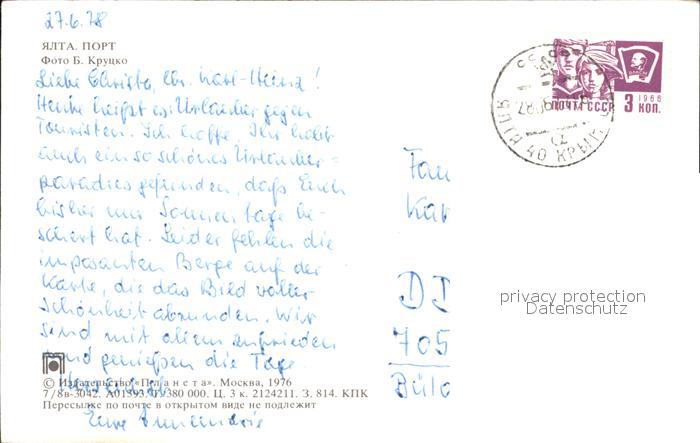 27.6.78
ЯЛТА. ПОРТ
Фото Б. Круцко
Liebe Christa, lb. Karl-Heinz!
Heute heißt es: Urlauber gegen
Touristen. Ich hoffe, Ihr habt
auch ein so schönes Urlauber=
paradies gefunden, daß Euch
bisher nur Sonnentage be-
schert hat. Leider fehlen die
imposanten Berge auf der
Karte, die das Bild voller
Schönheit abrunden. Wir
sind mit allem zufrieden
und genießen die Tage
© Издательство «Планета». Москва, 1976
7/8в-3042. А01593. Т. 380 000. Ц. 3 к. 2124211. З. 814. КПК
Пересылке по почте в открытом виде не подлежит
Eure
ПОЧТА СССР 3 КОП. 1966
ЯЛТА 40 КРЫМ
Fam
Kar
DD
705
privacy protection
Datenschutz